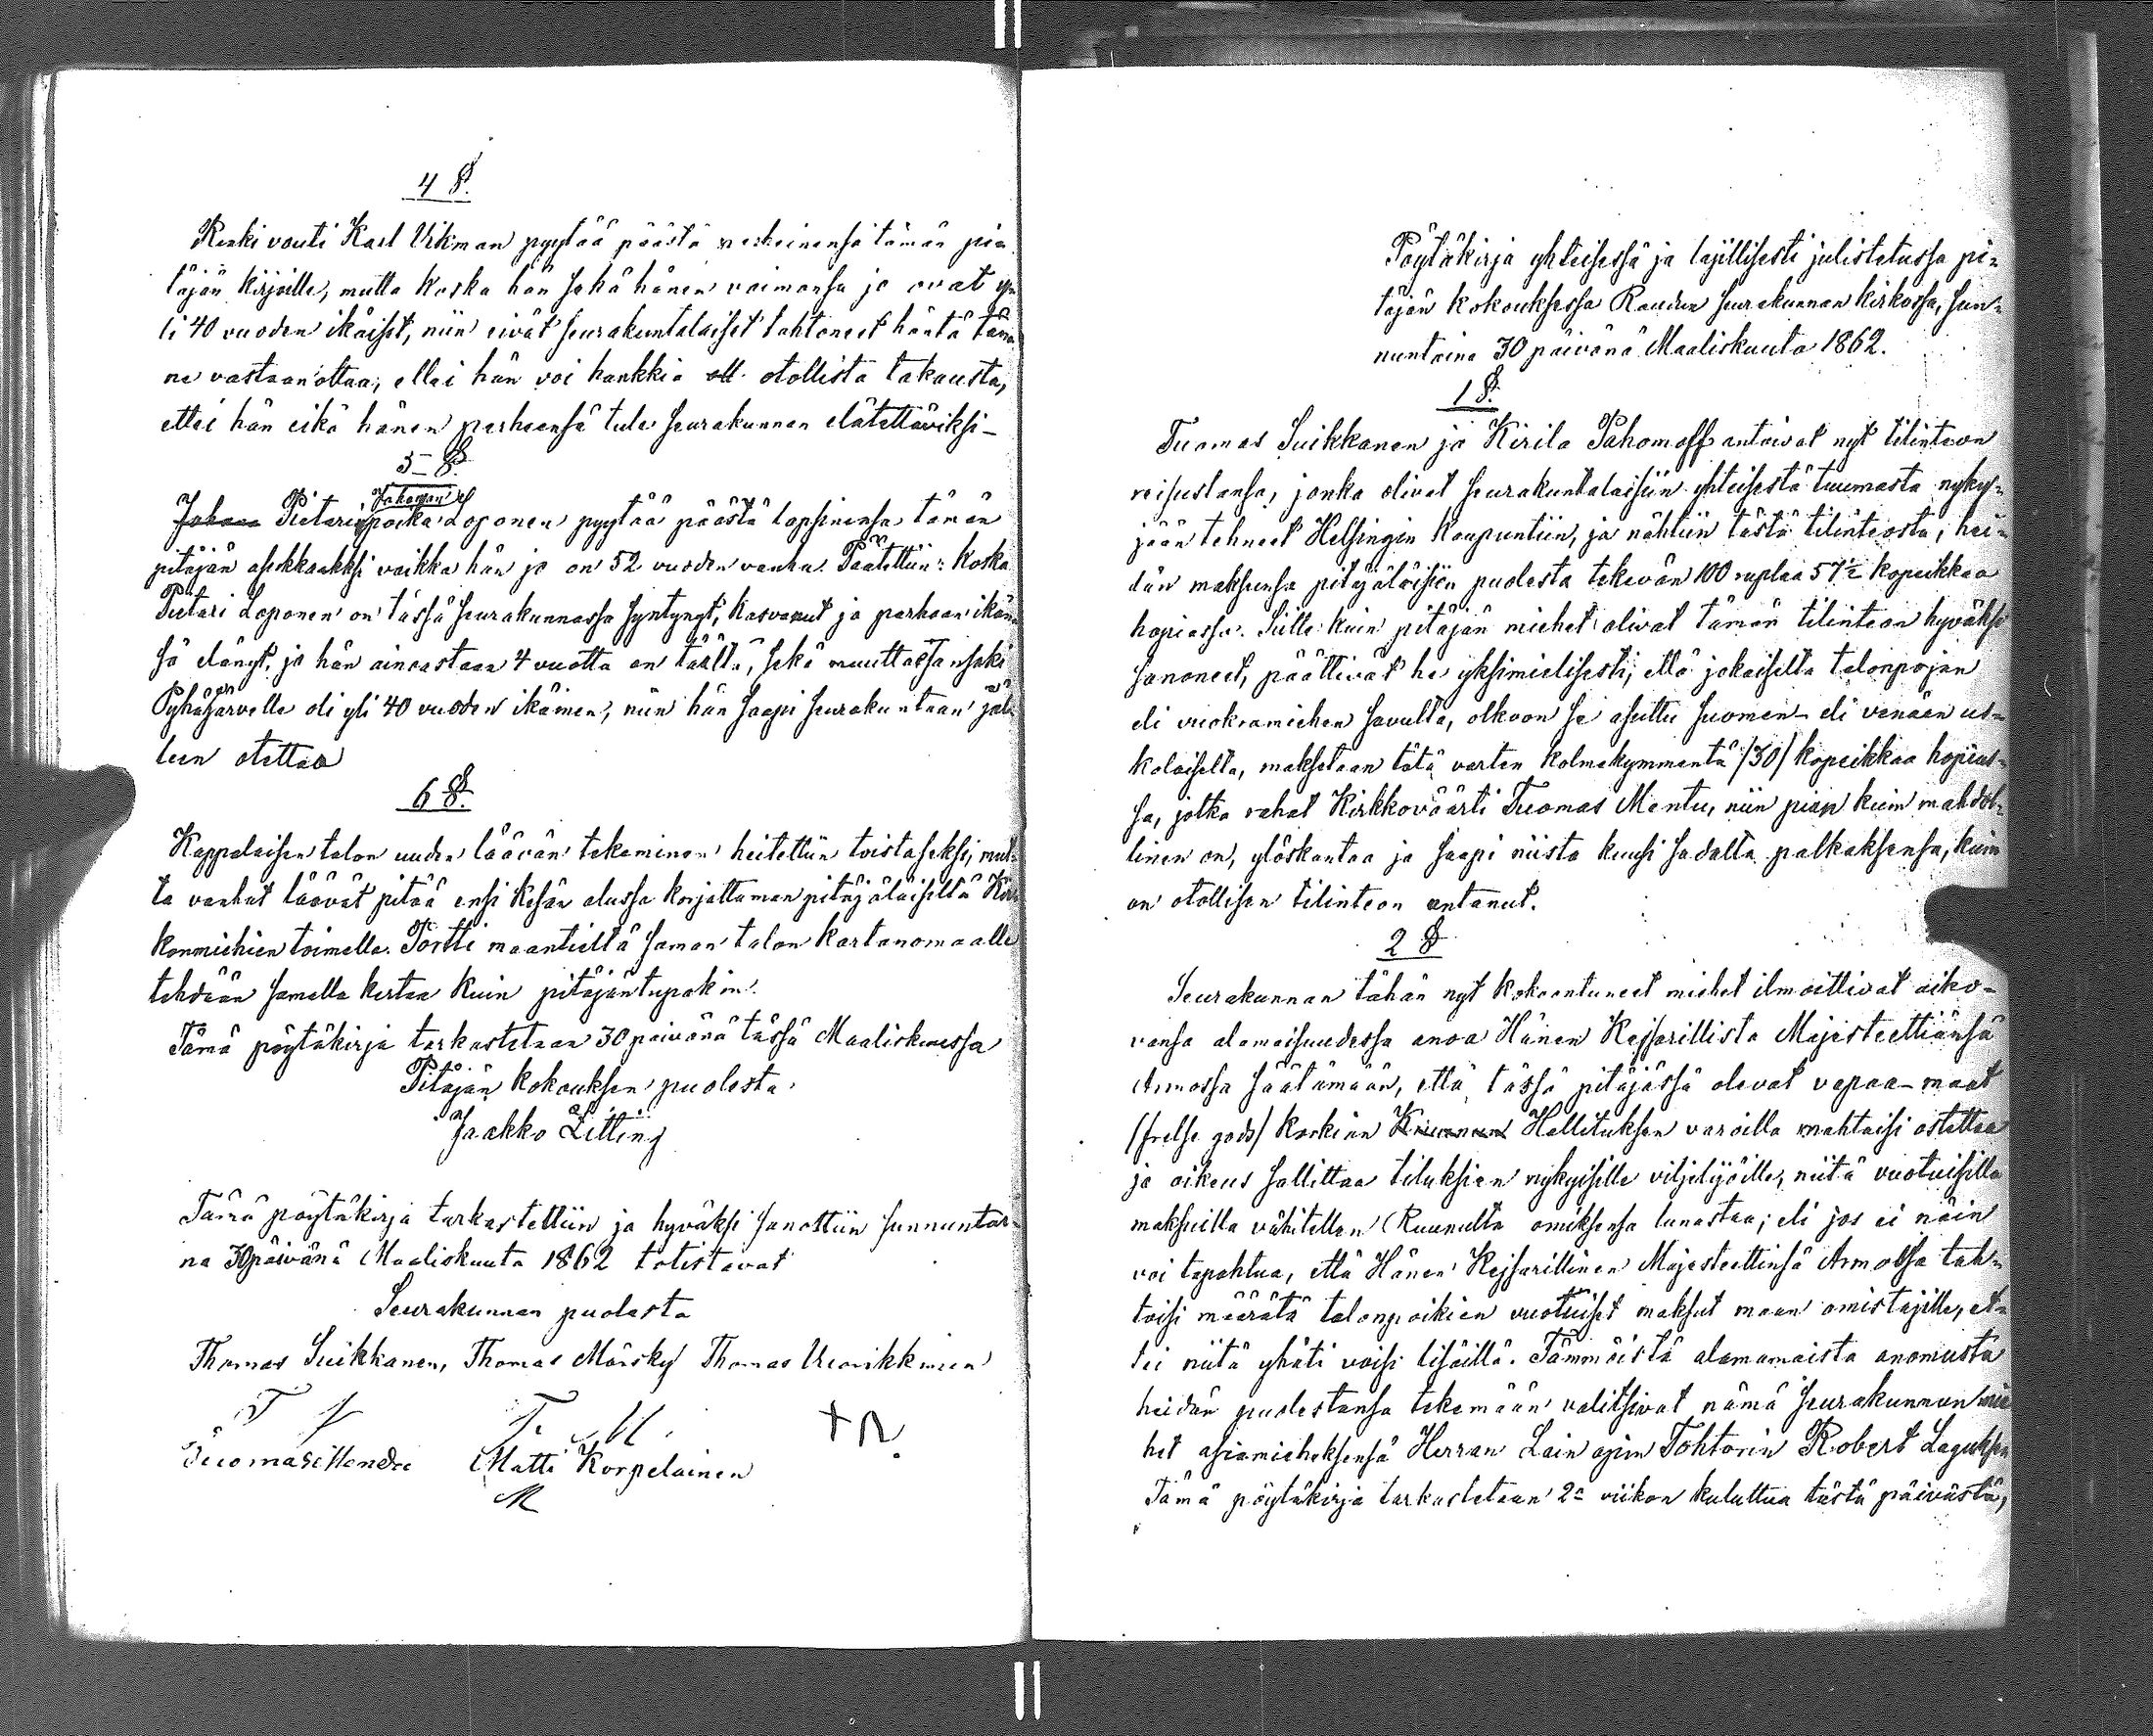 4 §.
Renki vouti Karl Vikman pyytää päästä perheinensä tämän pi-
täjän kirjoille, mutta koska hän sekä hänen vaimonsa jo ovat y-
li 40 vuoden ikäiset, niin eivät seurakuntalaiset tahtoneet häntä tän-
ne vastaanottaa, ellei hän voi hankkia otollista takausta,
ettei hän eikä hänen perheensä tule seurakunnan elätettäviksi -
5 §.
Juhanan
Pietari poika Loponen pyytää päästä lapsinensa tämän
pitäjän asukkaaksi vaikka hän jo on 52 vuoden vanha. Päätettiin: koska
Pietari Loponen on tässä seurakunnassa syntynyt, kasvanut ja parhaan ikän-
sä elänyt, ja hän ainoastaan 4 vuotta on täältä, sekä muuttaissansaki
Pyhäjärvelle oli yli 40 vuoden ikäinen, niin hän saapi seurakuntaan jäl-
leen otettaa
6 §.
Kappalaisen talon uuden läävän tekeminen heitettiin toistaseksi, mut-
ta vanhat läävät pitää ensi kesän alussa korjattaman pitäjäläisiltä Kir-
konmiehien toimella. Portti maantieltä saman talon kartanomaalle
tehdään samalla kertaa kuin pitäjäntupakin.
Tämä pöytäkirja tarkastetaan 30 päivänä tässä Maaliskuussa
Pitäjän kokouksen puolesta.
Jaakko Litting
Tämä pöytäkirja tarkastettiin ja hyväksi sanottiin sunnuntai-
na 30 päivänä Maaliskuuta 1862 totistavat
Seurakunnan puolesta
Thomas Suikkanen, Thomas Mörsky Thomas
T S T. M.
Tuomas Mentu Matti Korpelainen
M
Pöytäkirja yhteisessä ja lajillisesti julistetussa pi-
täjän kokouksessa Raudun seurakunnan kirkossa, sun-
nuntaina 30 päivänä Maaliskuuta 1862.
1 §.
Tuomas Suikkanen ja Kirila Pahomoff antoivat nyt tilinteon
reisustansa, jonka olivat seurakuntalaisiin yhteisestä tuumasta nyky-
jään tehneet Helsingin kaupuntiin, ja nähtiin tästä tilinteosta, hei-
dän maksunsa pitäjäläisiin puolesta tekevän 100 ruplaa 57½ kopeikkaa
hopiassa. Sitte kuin pitäjän miehet olivat tämän tilinteon hyväksi
sanoneet, päättivät he yksimielisesti, että jokaiselta talonpojan
eli vuokramiehen savulta, olkoon se asuttu suomen- eli venäen us-
kolaiselta, maksetaan tätä varten kolmekymmentä /30/ kopeikkaa hopias-
sa, jotka rahat Kirkkoväärti Tuomas Mentu, niin pian kuin mahdol-
linen on, ylöskantaa ja saapi niistä kuusi sadalta palkaksensa, kuin
on otollisen tilinteon antanut.
2 §
Seurakunnan tähän nyt kokoontuneet miehet ilmoittivat aiko-
vansa alamaisuudessa anoa Hänen Kejsarillista Majesteettiänsä
Armossa säätämään, että tässä pitäjässä olevat vapaa-maat
(frelse gods) korkian Hallituksen varoilla mahtaisi ostettaa
ja oikeus sallittaa tiluksien nykyisille viljelijöille, niitä vuotuisilla
maksuilla vähitellen Ruunulta omiksensa lunastaa; eli jos ei näin
voi tapahtua, että Hänen Kejsarillinen Majesteettinsä Armossa tah-
toisi määrätä talonpoikien vuotuiset maksut maan omistajille, et-
tei niitä yhäti voisi lisäillä. Tämmöistä alamamaista anomusta
heidän puolestansa tekemään valitsivat nämä seurakunnan mie-
het asiamieheksensä Herran Lain opin Tohtorin Robert Laguksen
Tämä pöytäkirja tarkastetaan 2n viikon kuluttua tästä päivästä,